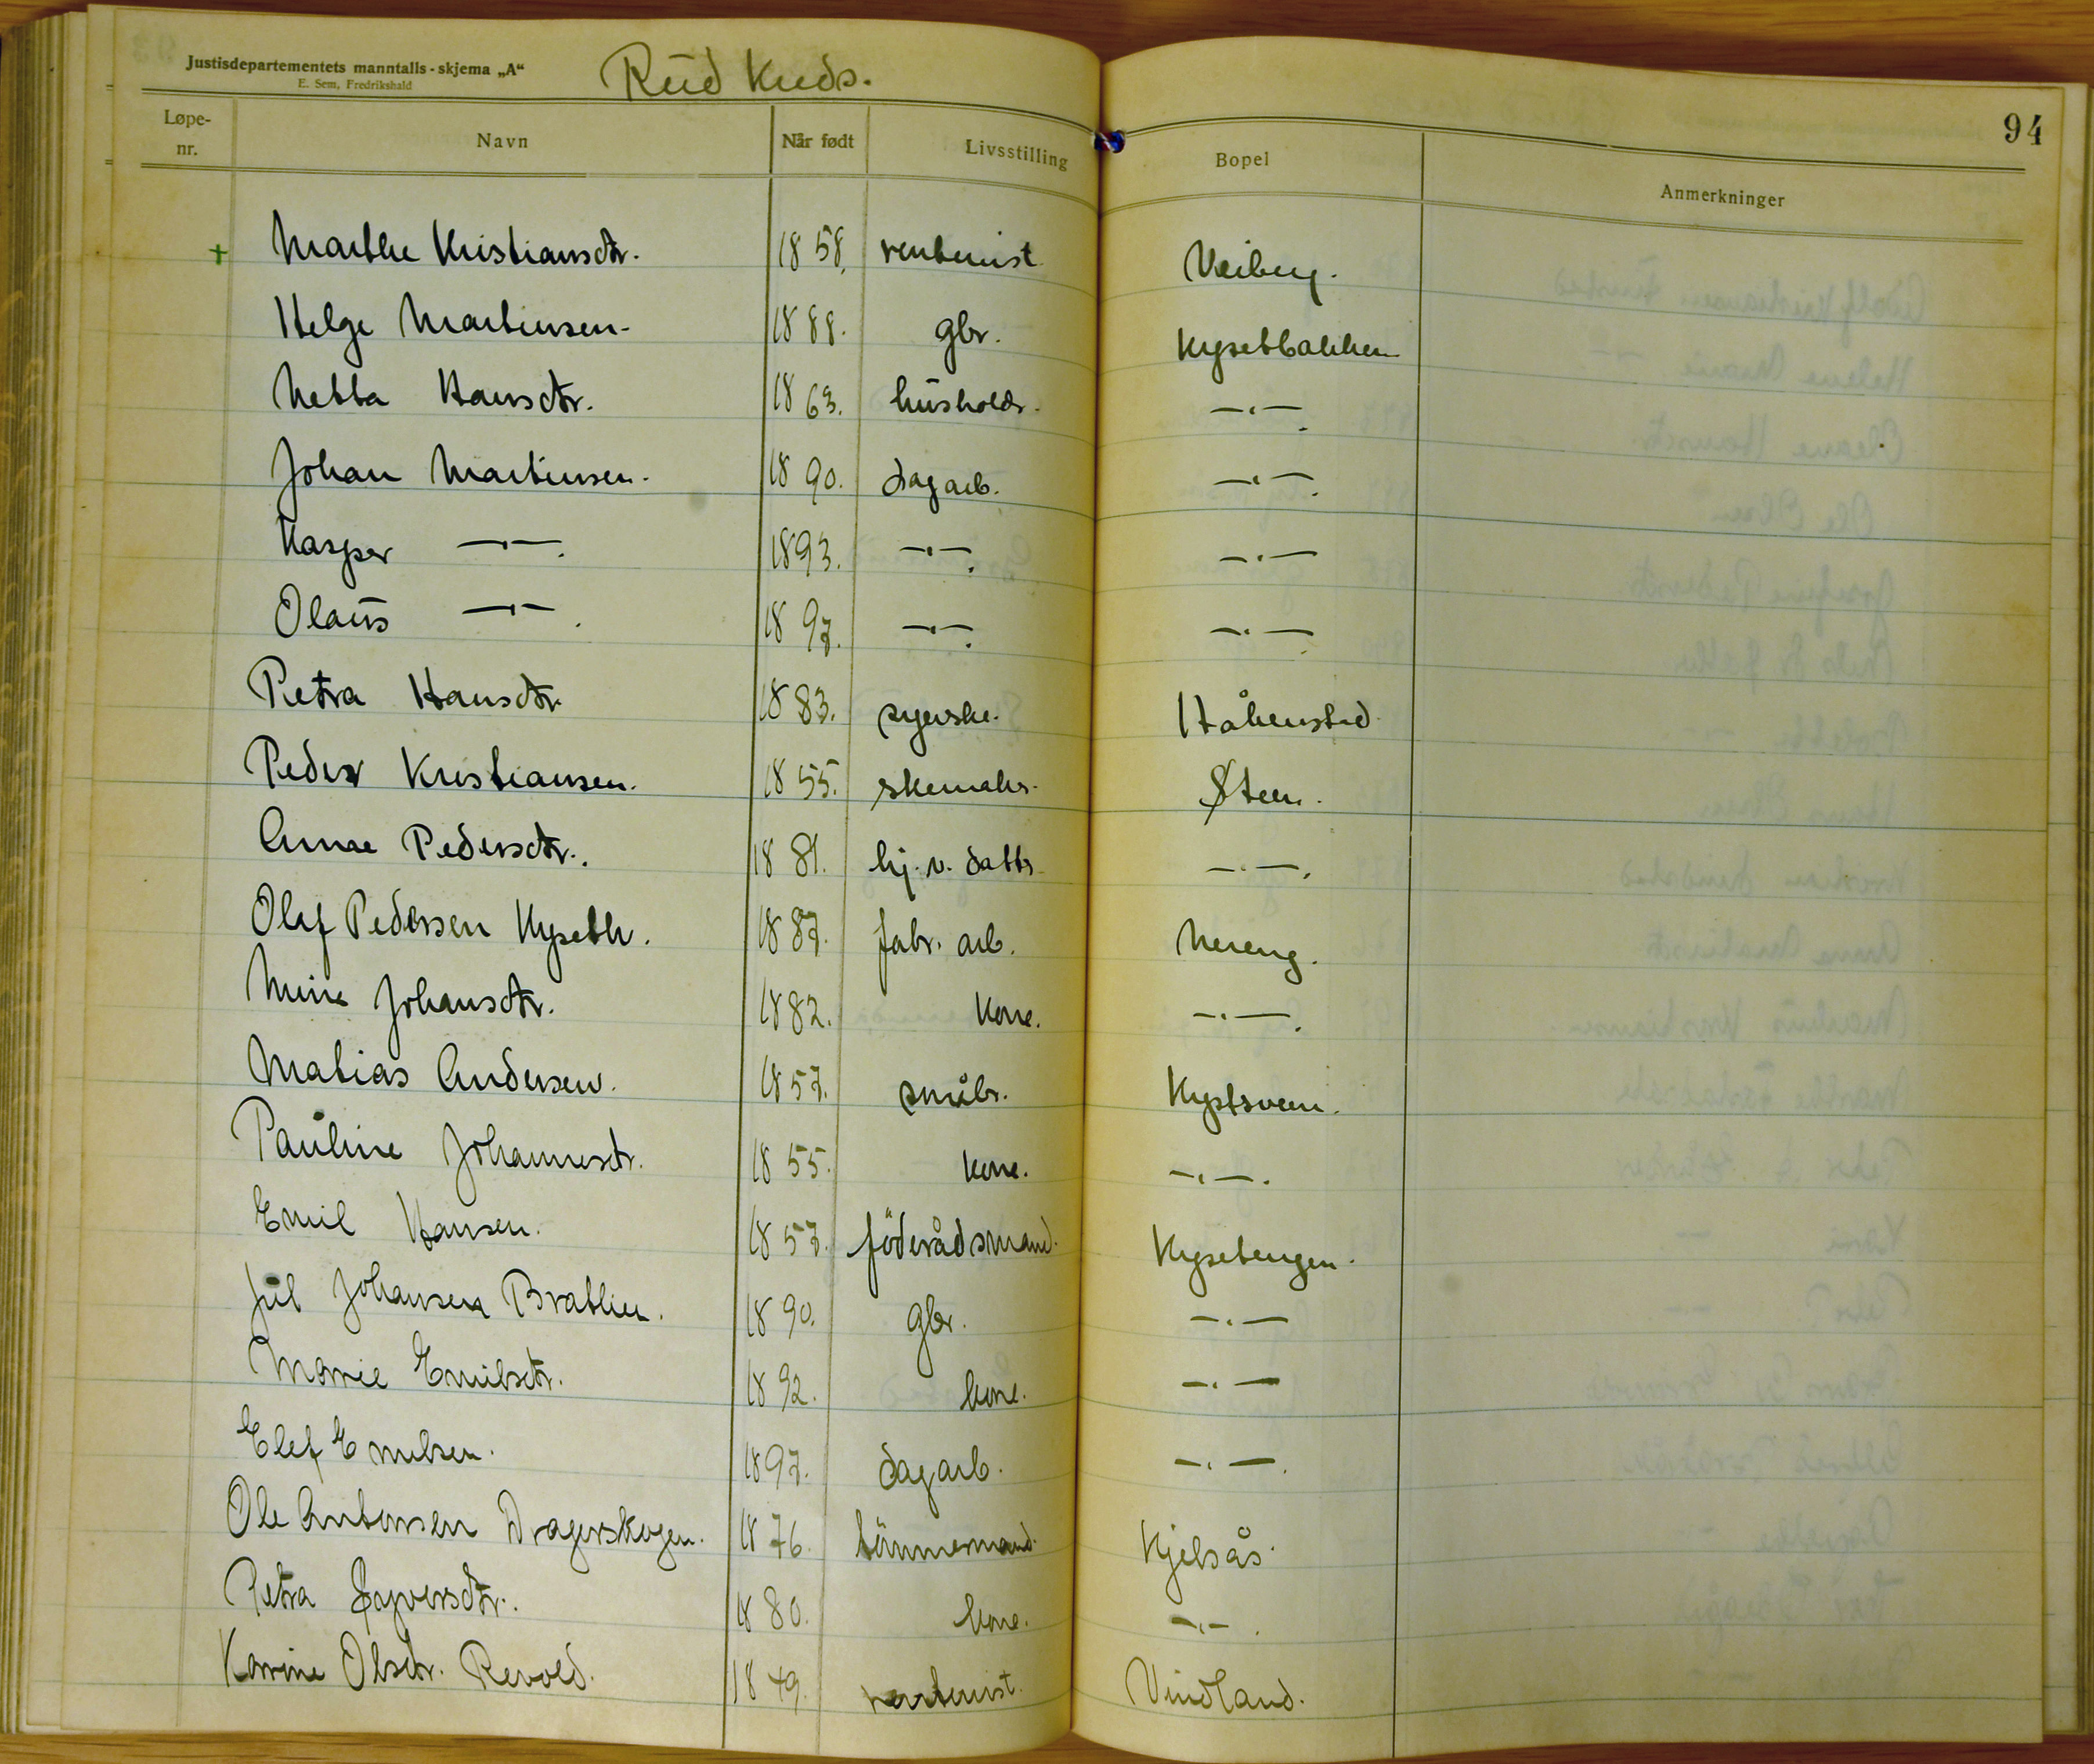 Justisdepartementets manntalls-skjema „A“
E. Sem, Fredrikshald
Rud Kreds.
94
Løpe-nr. Navn Når født Livsstilling Bopel Anmerkninger
+ Marthe Kristiansdtr. 1858. rentenist Veiberg.
Helge Martinsen. 1888. gbr. Kysetbakken
Netta Hansdtr. 1863. husholdr. —·—
Johan Martinsen. 1890. dagarb. —·—.
Kasper —·—. 1893. —·—. —·—
Olaus —·—. 1897. —·—. —·—
Petra Hansdtr. 1883. syerske. Håkenstad
Peder Kristiansen. 1855. skomaker. Steen.
Anne Pedersdtr. 1881. hj. v. datter —·—.
Olaf Pedersen Kyseth. 1887. fabr. arb. Nereng.
Mina Johansdtr. 1882. kone. —·—.
Matias Andersen. 1857. småbr. Kystsveen.
Pauline Johannesdtr. 1855. kone. —·—.
Emil Hansen. 1857. föderådsmand. Kysetengen.
Jul Johansen Bratlien. 1890. gbr. —·—
Marie Emilsdtr. 1892. kone. —·—
Elef Emilsen. 1897. dagarb. —·—.
Ole Antonsen Dragerskogen. 1876. tömmermand. Kjelsås.
Petra Syversdtr. 1880. kone. —·—.
Karine Olsdtr. Revold. 1849. rentenist. Vindland.